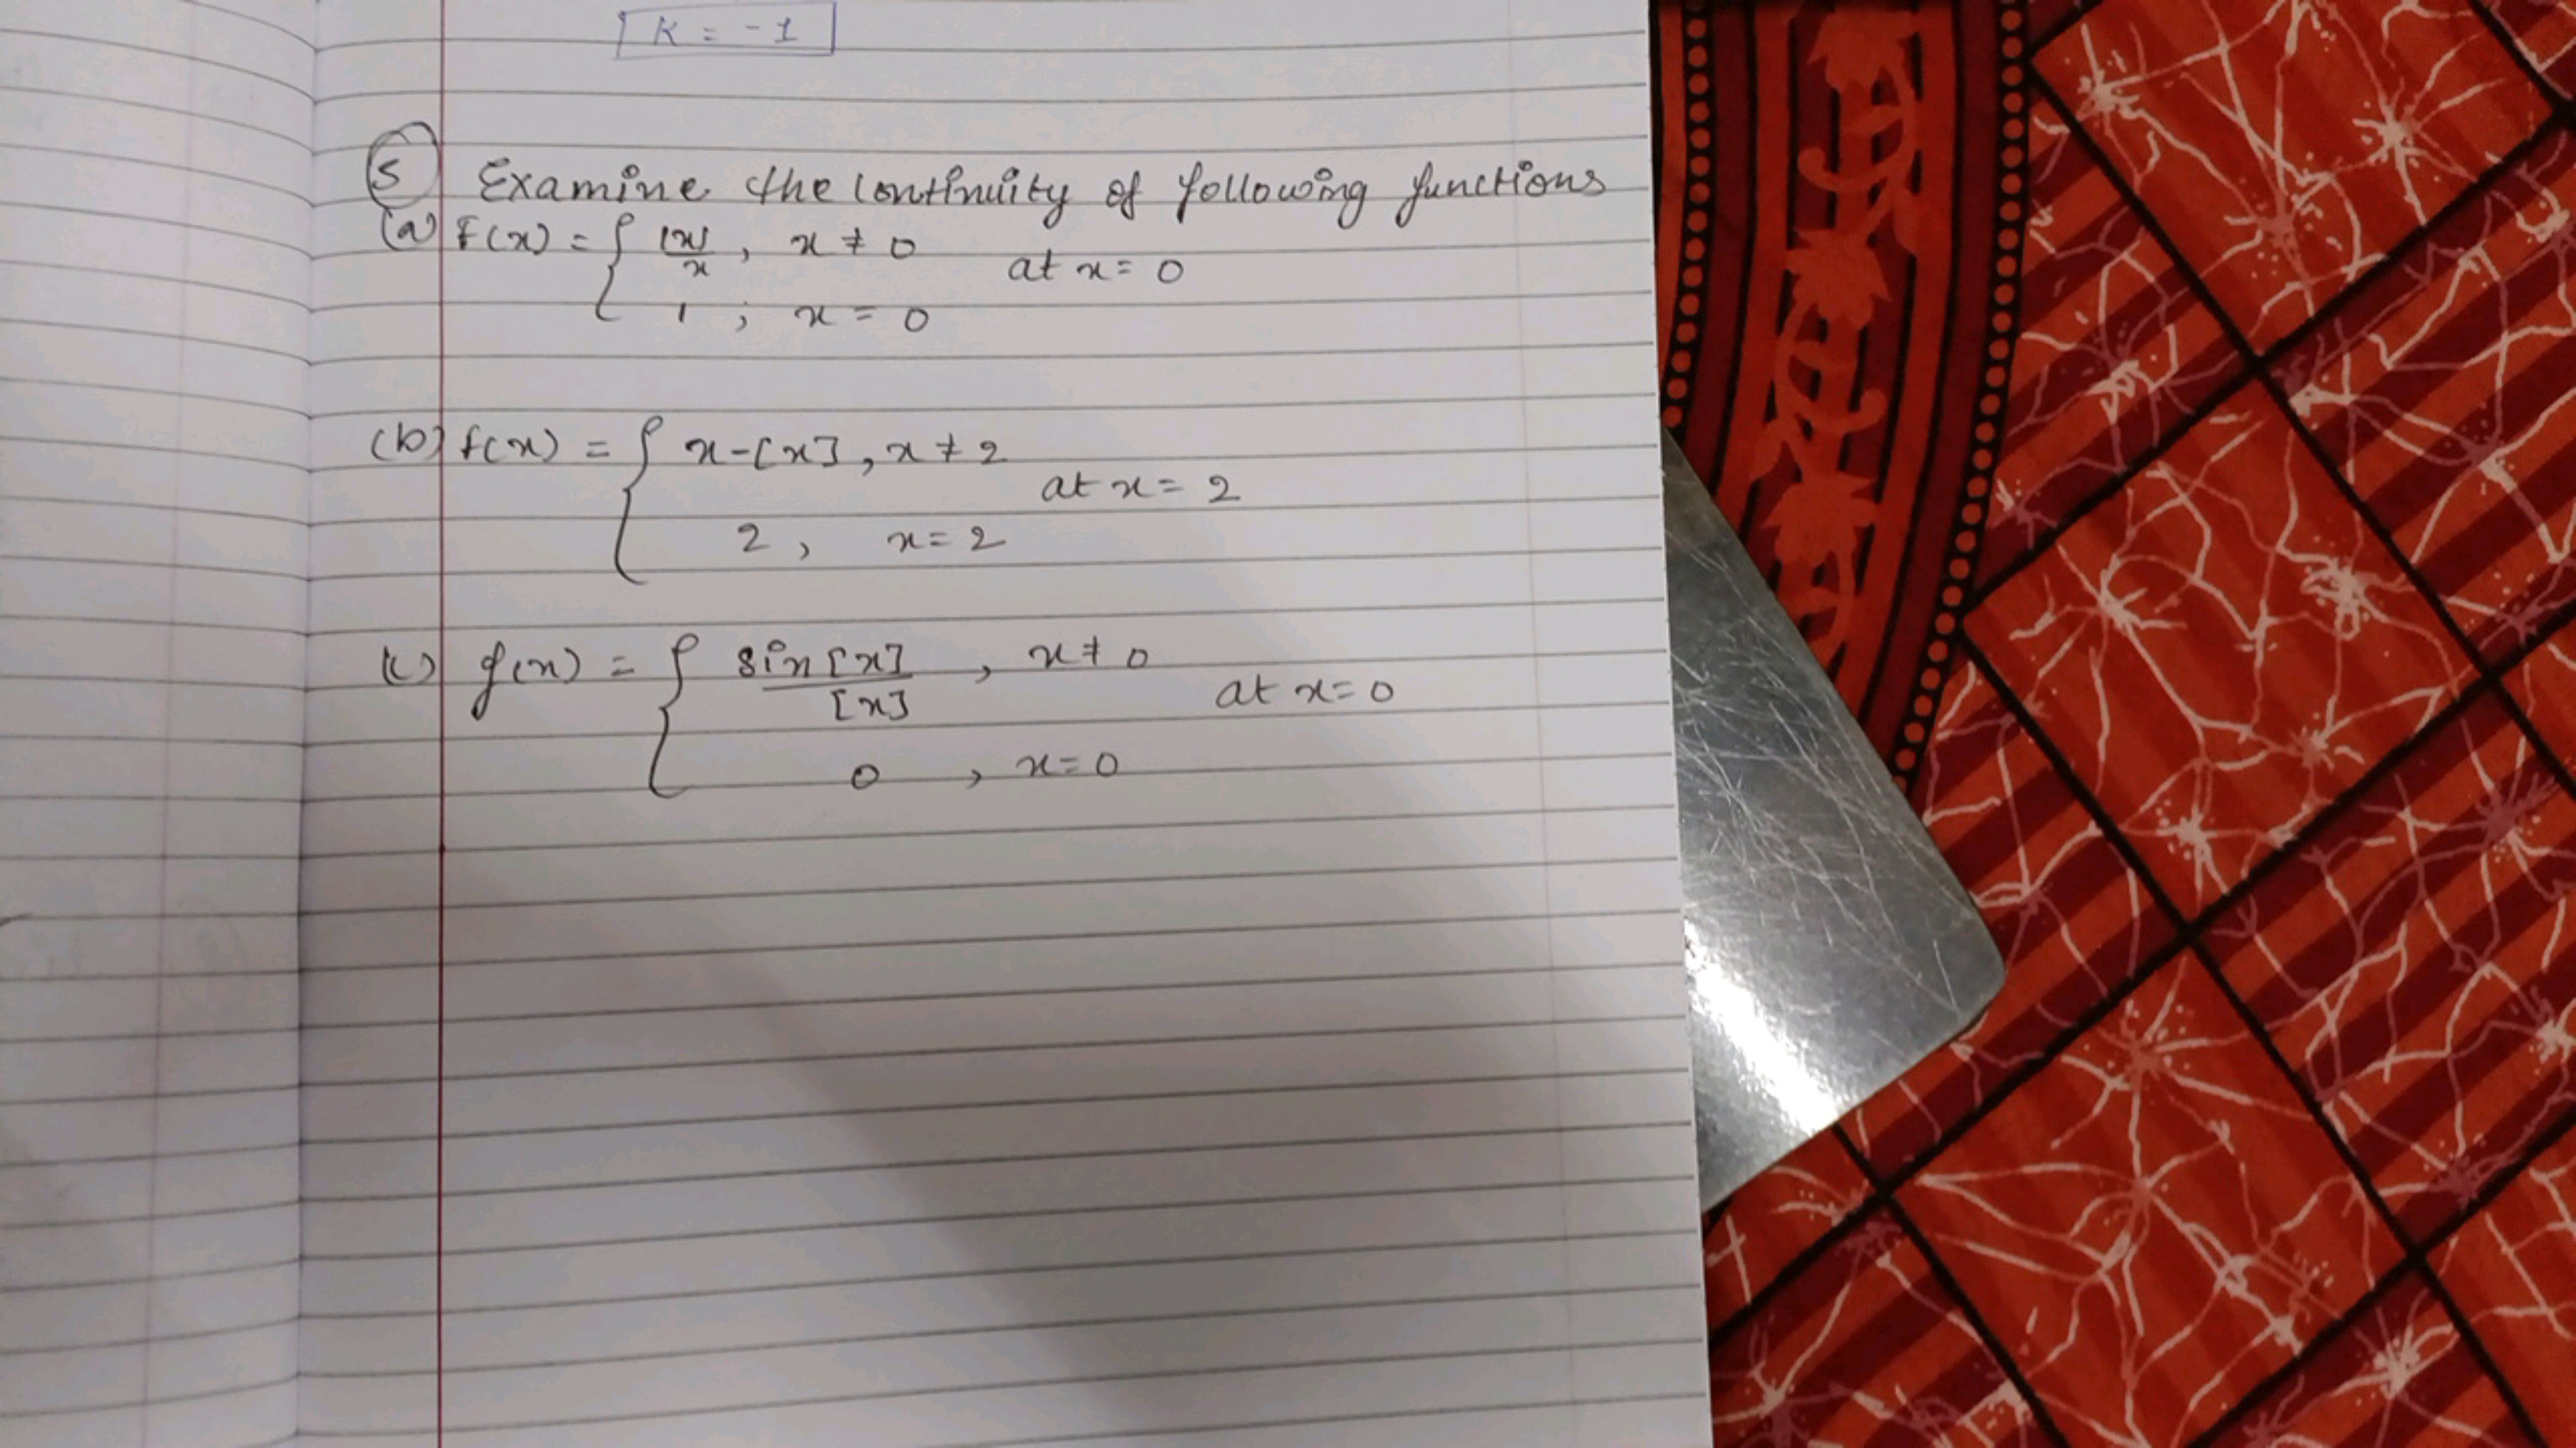 K = -1
5 Examine the continuity of following functions
(a) F(x) = { |x|/x , x ≠ 0
at x = 0
1 ; x = 0
(b) f(x) = { x-[x] , x ≠ 2
at x = 2
2 , x = 2
(c) f(x) = { sin[x]/[x] , x ≠ 0
at x = 0
0 , x = 0